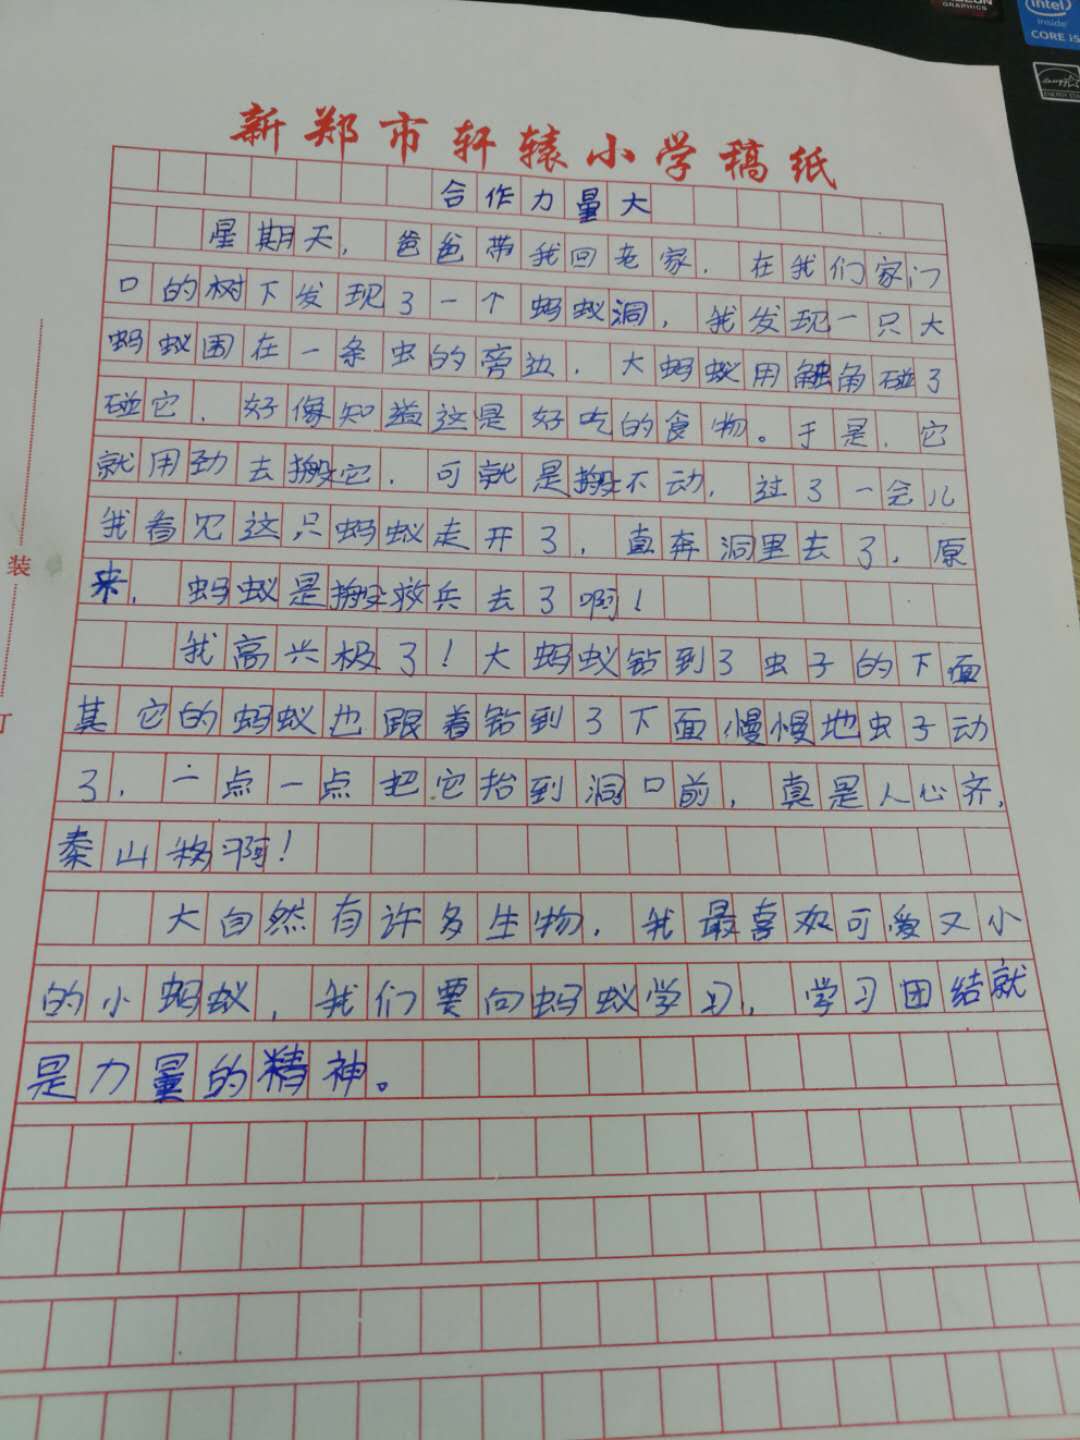 RADEON
GRAPHICS
intel
inside
CORE i5
ENERGY STAR
新郑市轩辕小学稿纸
合作力量大
星期天，爸爸带我回老家．在我们家门
口的树下发现了一个蚂蚁洞，我发现一只大
蚂蚁围在一条虫的旁边．大蚂蚁用触角碰了
碰它．好像知道这是好吃的食物。于是．它
就用劲去搬它．可就是搬不动．过了一会儿
我看见这只蚂蚁走开了．直奔洞里去了．原
来．蚂蚁是搬救兵去了啊！
我高兴极了！大蚂蚁钻到了虫子的下面
其它的蚂蚁也跟着钻到了下面慢慢地虫子动
了．一点一点把它抬到洞口前，真是人心齐，
秦山移啊！
大自然有许多生物．我最喜欢可爱又小
的小蚂蚁，我们要向蚂蚁学习，学习团结就
是力量的精神。
装
订